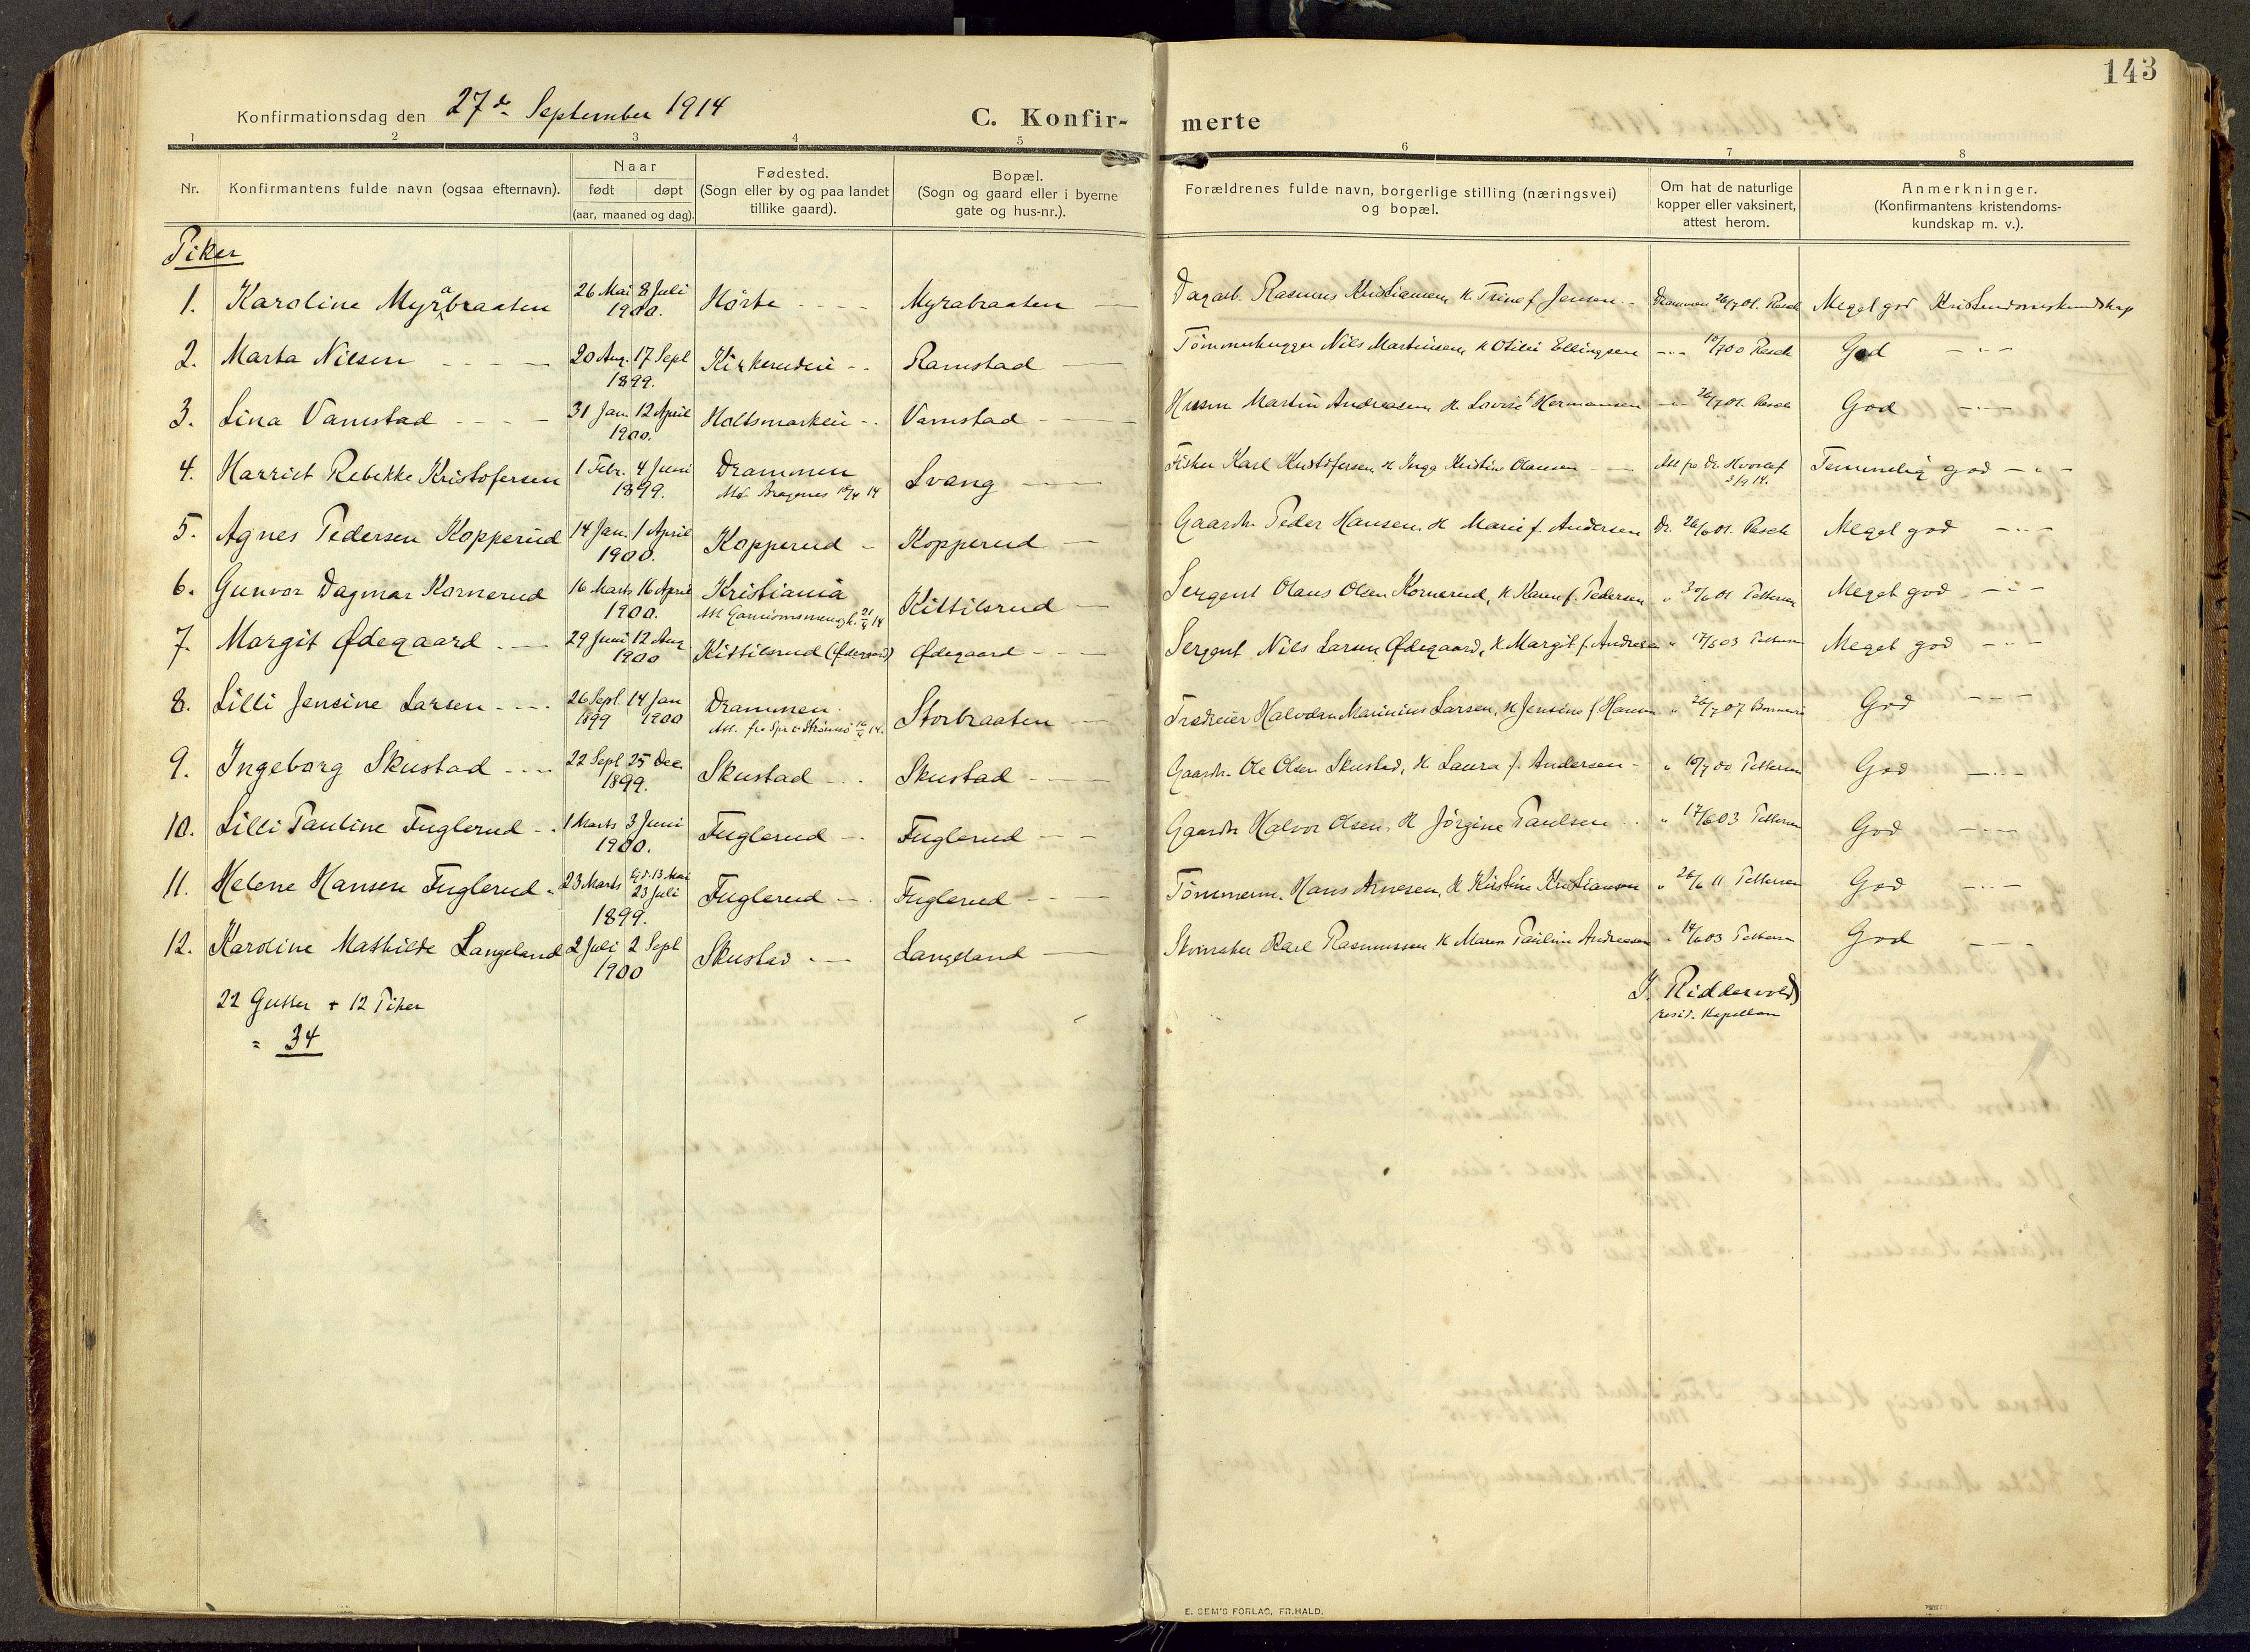 143
Konfirmationsdag den 27de September 1914 C. Konfir- merte
1 2 3 4 5 6 7 8
Nr. Konfirmantens fulde navn (ogsaa efternavn). Naar født døpt (aar, maaned og dag). Fødested. (Sogn eller by og paa landet tillike gaard). Bopæl. (Sogn og gaard eller i byerne gate og hus-nr.). Forældrenes fulde navn, borgerlige stilling (næringsvei) og bopæl. Om hat de naturlige kopper eller vaksinert, attest herom. Anmerkninger. (Konfirmantens kristendoms- kundskap m. v.).
Piker
1. Karoline Myrabraaten 26 Mai 8 Juli 1900. Hörte Myrabraaten Dagarb. Rasmus Kristiansen, H. Trine f. Jensen Drammen 26/7 01. Resch Meget god Kristendomskundskap
2. Marta Nilsen 20 Aug. 17 Sept 1899. Kirkerudeie Ramstad Tömmerhugger Nils Martinsen, H Otilie Ellingsen 10/7 00 Resch God
3. Lina Vamstad 31 Jan. 12 April 1900. Holtsmarkeie Vamstad Husm Martin Andreasen, H. Lovise f Hermansen 26/7 01. Resch God
4. Harriet Rebekke Kristofersen 1 Febr. 4 Juni 1899. Drammen Att. Bragenes 14 Svang Fisker Karl Kristofersen H Inga Kristine Olausen Att fra Dr. 3/9 14. Temmelig god
5. Agnes Pedersen Kopperud 14 Jan. 1 April 1900. Kopperud Kopperud Gaardbr. Peder Hansen, H Marie f. Andersen Dr. 26/6 01. Resch Meget god
6. Gunvor Dagmar Kornerud 16 Marts 16 April 1900. Kristiania Att Garnisonsmengh. 21/4 14 Kittilsrud Sergent Olaus Olsen Kornerud, H Karen f. Pedersen " 01 Pettersen Meget god
7. Margit Ødegaard 29 Juni 12 Aug 1900 Kittilsrud (Ødegaard) Ødegaard Sergent Nils Larsen Ødegaard, H Margit f. Andresen " 17/6 03 Pettersen Meget god
8. Lilli Jensine Larsen 26 Sept. 14 Jan 1899 1900 Drammen. Att. fra Spr. t. Strömsö 14. Storbraaten Trædreier Halvdan Marinius Larsen, H Jensine f Hansen " 26/7 07 God
9. Ingeborg Skustad 22 Sept 25 Dec. 1899. Skustad Skustad Gaardbr. Ole Olsen Skustad, H. Laura f. Andersen " 10/7 00 Pettersen God
10. Lilli Pauline Fuglerud 1 Marts 3 Juni 1900. Fuglerud Fuglerud Gaardbr Halvor Olsen, H Jörgine Paulsen " 17/6 03 Pettersen God
11. Helene Hansen Fuglerud 23 Marts Hj.d. 13. Mai 23 Juli 1899. Fuglerud Fuglerud Tömmerm. Hans Arnesen, H Kristine Kristiansen " 26/6 11 Pettersen God
12. Karoline Mathilde Langeland 2 Juli 2 Sept 1900 Skustad Langeland Skomaker Karl Rasmussen H Maren Pauline Andreasen " 17/6 03 Pettersen God
22 Gutter + 12 Piker
= 34
J. Riddervold
resid. Kapellan
E. SEM'S FORLAG, FR.HALD.